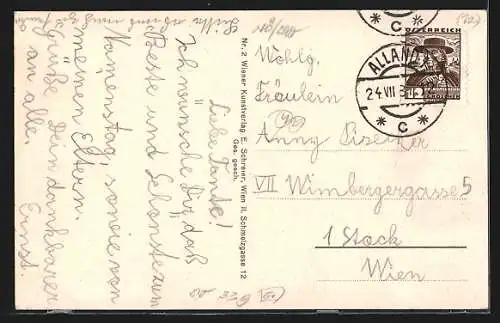 Liebe Tante!
Ich wünsche Dir, daß
Beste und Schönste zum
Namenstag, sowie von
meinen Eltern.
Grüße Dein dankbarer
an alle. Ernst.
Nr. 2 Wiener Kunstverlag E. Schreier, Wien II, Schmelzgasse 12
Ges. gesch.
Wohlg.
Fräulein
Anny
VII Wimbergergasse 5
1 Stock
Wien
ÖSTERREICH
ALLAND
24 VII 3
* C *
* C *